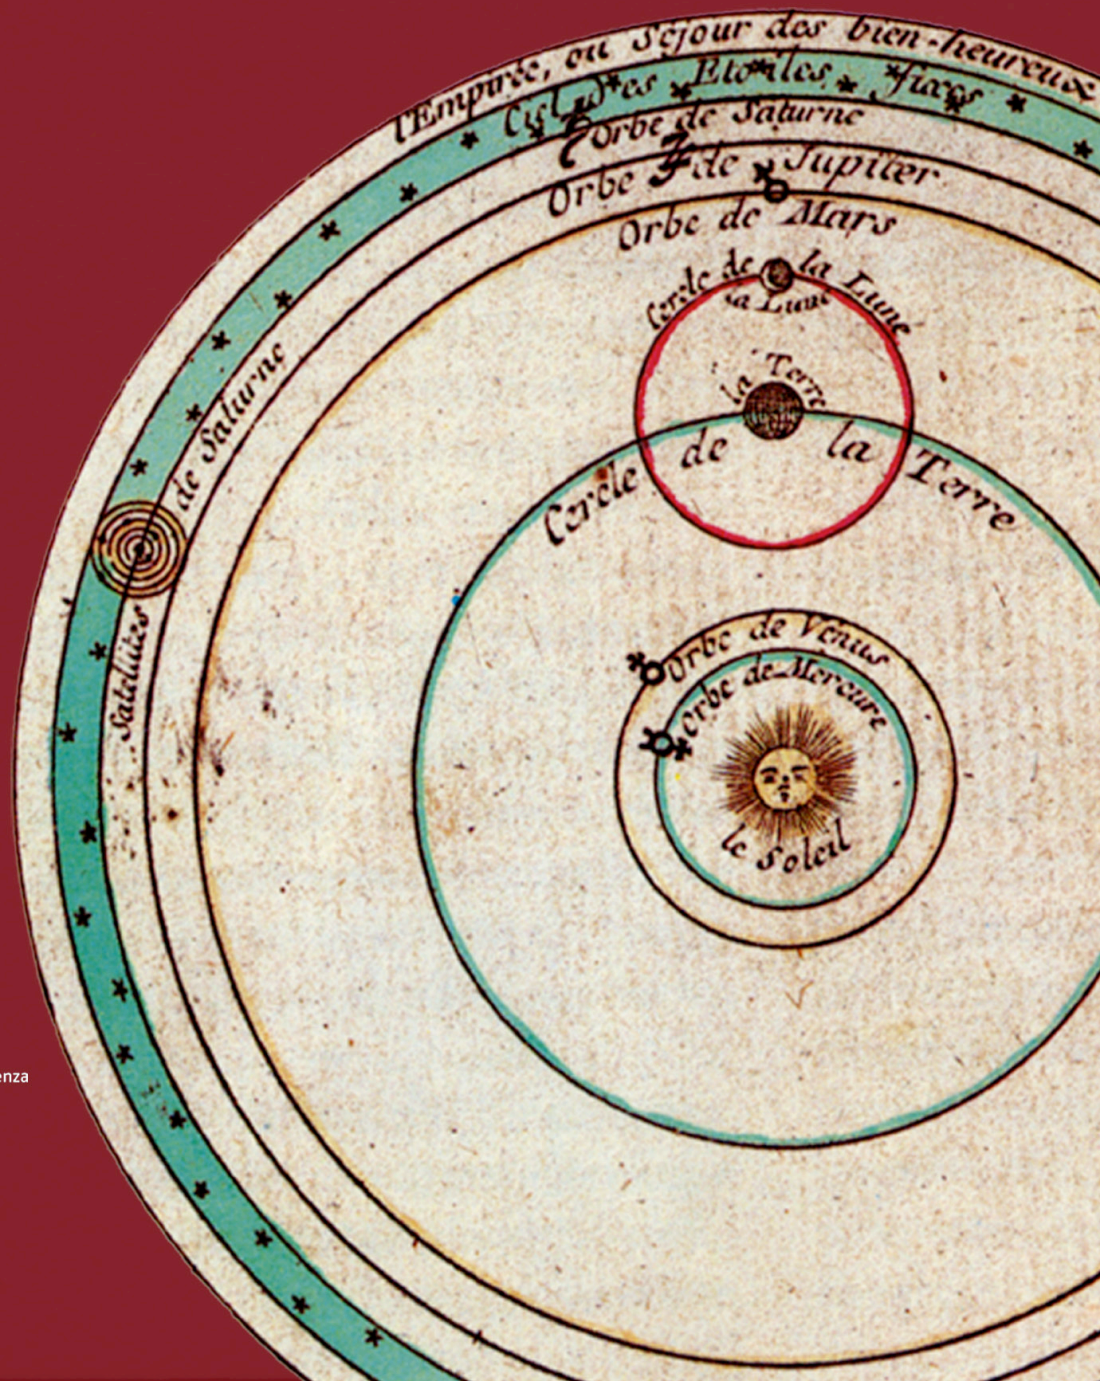 l'Empirée, ou Séjour des bien-heureux
Ciel des Etoiles fixes
Orbe de Saturne
Orbe de Jupiter
Orbe de Mars
Cercle de la Lune
la Lune
la Terre
Cercle de la Terre
de Saturne
Satellites
Orbe de Venus
Orbe de Mercure
le Soleil
enza